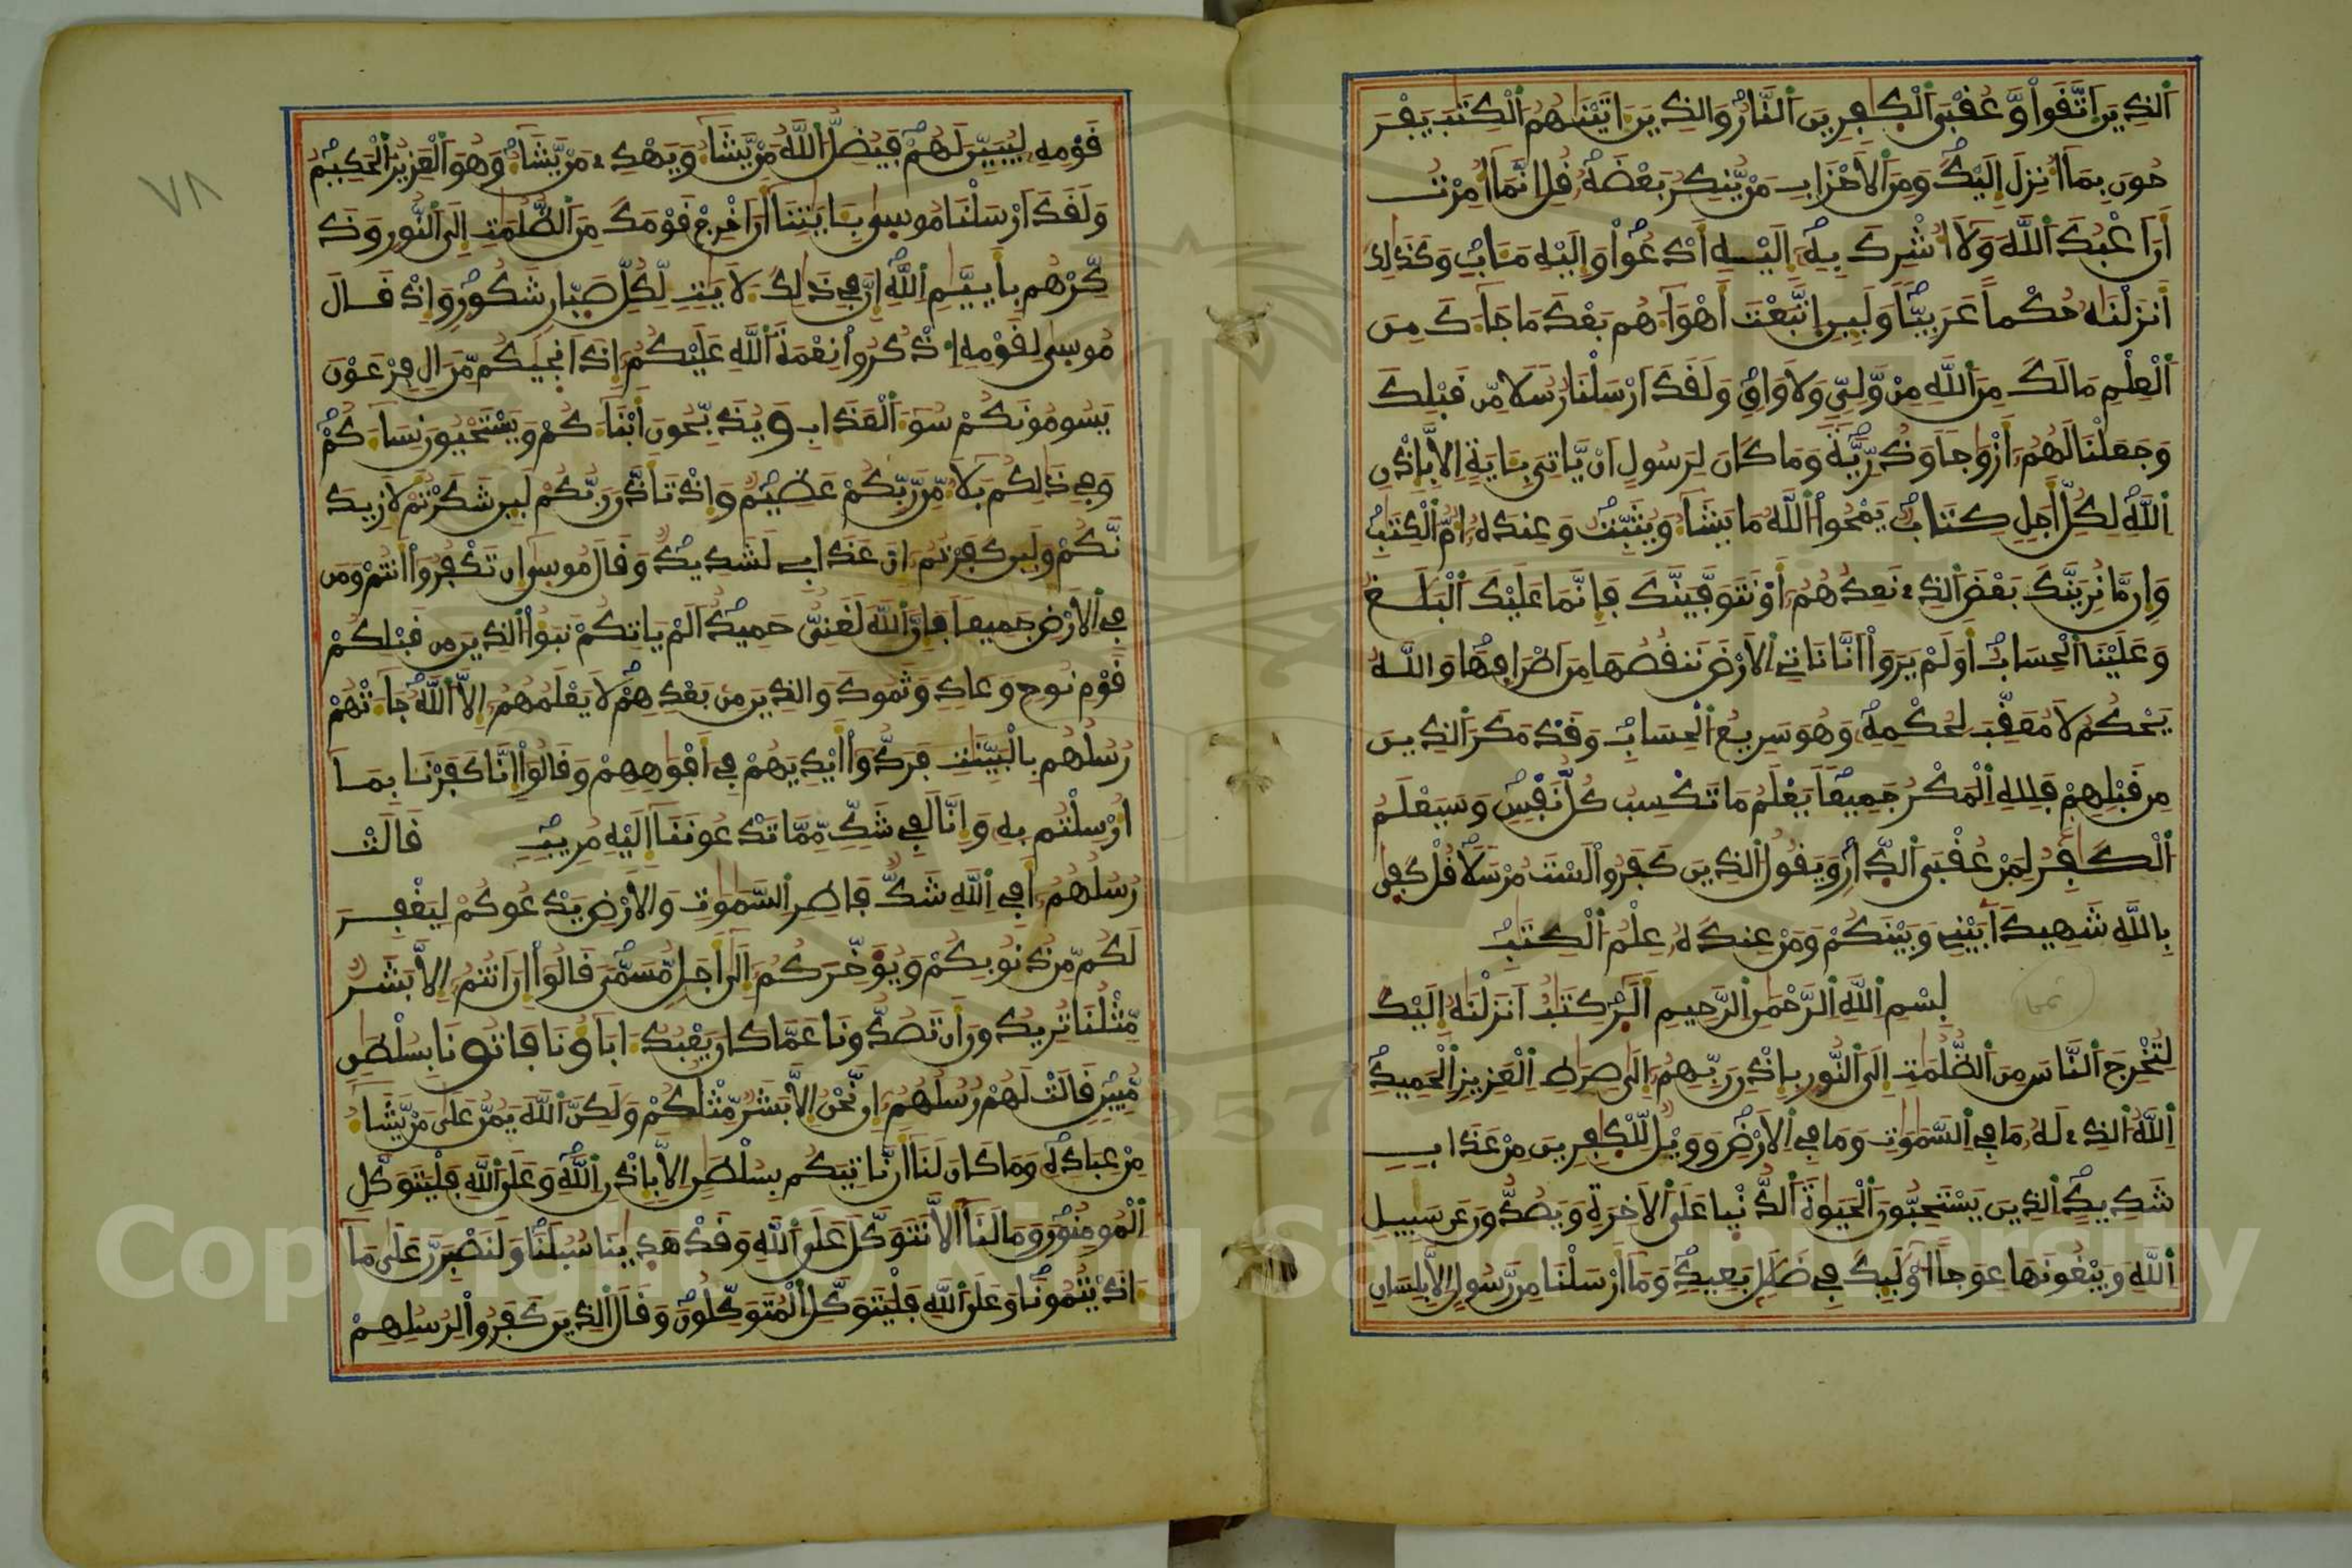 الذِينَ اَتَّقَواْ وَّعُقْبَى اَلْكٰفِرِينَ اَلنَّارُ وَالذِينَ ءَاتَيْنَٰهُمُ اَلْكِتَٰبَ يَفْرَ
حُونَ بِمَا أُنزِلَ إِلَيْكَ وَمِنَ اَلَاحْزَابِ مَنْ يُّنكِرُ بَعْضَهُۥ قُلِ انَّمَا أُمِرْتُ
أَنَ اَعْبُدَ اَللَّهَ وَلَا أُشْرِكَ بِهِۦ إِلَيْهِ أَدْعُواْ وَإِلَيْهِ مَـَٔابِ وَكَذَٰلِكَ
أَنزَلْنَٰهُ حُكْماً عَرَبِيّاً وَلَئِنِ اِتَّبَعْتَ أَهْوَآءَهُم بَعْدَ مَا جَآءَكَ مِنَ
اَلْعِلْمِ مَا لَكَ مِنَ اَللَّهِ مِنْ وَّلِيٍّ وَلَا وَاقٍ وَلَقَدَ اَرْسَلْنَا رُسُلًا مِّن قَبْلِكَ
وَجَعَلْنَا لَهُمُۥ أَزْوَٰجاً وَذُرِّيَّةً وَمَا كَانَ لِرَسُولٍ اَنْ يَّاتِيَ بِـَٔايَةٍ اِلَّا بِإِذْنِ
اِللَّهِ لِكُلِّ أَجَلٍ كِتَابٌ يَمْحُواْ اَللَّهُ مَا يَشَآءُ وَيُثَبِّتُ وَعِندَهُۥ أُمُّ اَلْكِتَٰبِ
وَإِن مَّا نُرِيَنَّكَ بَعْضَ اَلذِے نَعِدُهُمُۥ أَوْ نَتَوَفَّيَنَّكَ فَإِنَّمَا عَلَيْكَ اَلْبَلَٰغُ
وَعَلَيْنَا اَلْحِسَابُ أَوَلَمْ يَرَوَاْ اَنَّا نَاتِے اِلَارْضَ نَنقُصُهَا مِنَ اَطْرَافِهَا وَاللَّهُ
يَحْكُمُ لَا مُعَقِّبَ لِحُكْمِهِۦ وَهُوَ سَرِيعُ اُلْحِسَابِ وَقَدْ مَكَرَ اَلذِينَ
مِن قَبْلِهِمْ فَلِلهِ اِلْمَكْرُ جَمِيعاً يَعْلَمُ مَا تَكْسِبُ كُلُّ نَفْسٍ وَسَيَعْلَمُ
اُلْكَٰفِرُ لِمَنْ عُقْبَى اَلدِّارِ وَيَقُولُ الذِينَ كَفَرُواْ لَسْتَ مُرْسَلًا قُلْ كَفِىٰ
بِاللَّهِ شَهِيداَۢ بَيْنِے وَبَيْنَكُمْ وَمَنْ عِندَهُۥ عِلْمُ اُلْكِتَٰبِ
بِسْمِ اِللَّهِ اِلرَّحْمَٰنِ اِلرَّحِيمِ أَلَٓرٰ كِتَٰبٌ اَنزَلْنَٰهُ إِلَيْكَ
لِتُخْرِجَ اَلنَّاسَ مِنَ اَلظُّلُمَٰتِ إِلَى اَلنُّورِ بِإِذْنِ رَبِّهِمُۥ إِلَىٰ صِرَٰطِ اِلْعَزِيزِ اِلْحَمِيدِ
اِللَّهُ اُلذِے لَهُۥ مَا فِے اِلسَّمَٰوَٰتِ وَمَا فِے اِلَارْضِ وَوَيْلٌ لِّلْكٰفِرِينَ مِنْ عَذَابٍ
شَدِيدٍ اِلذِينَ يَسْتَحِبُّونَ اَلْحَيَوٰةَ اَلدُّنْيا عَلَى اَلَاخِرَةِ وَيَصُدُّونَ عَن سَبِيلِ
اِللَّهِ وَيَبْغُونَهَا عِوَجاً اوْلَٰئِكَ فِے ضَلَٰلٍ بَعِيدٍ وَمَا أَرْسَلْنَا مِن رَّسُولٍ اِلَّا بِلِسَانِ
قَوْمِهِۦ لِيُبَيِّنَ لَهُمْ فَيُضِلُّ اُللَّهُ مَنْ يَّشَآءُ وَيَهْدِے مَنْ يَّشَآءُ وَهُوَ اَلْعَزِيزُ اُلْحَكِيمُ
وَلَقَدَ اَرْسَلْنَا مُوسِىٰ بِـَٔايَٰتِنَا أَنَ اَخْرِجْ قَوْمَكَ مِنَ اَلظُّلُمَٰتِ إِلَى اَلنُّورِ وَذَ
كِّرْهُم بِأَيَّيٰمِ اِللَّهِ إِنَّ فِے ذَٰلِكَ لَأٓيَٰتٍ لِّكُلِّ صَبّارٍ شَكُورٍ وَإِذْ قَالَ
مُوسِىٰ لِقَوْمِهِ اِذْكُرُواْ نِعْمَةَ اَللَّهِ عَلَيْكُمُۥ إِذَ اَنجِيٰكُم مِّنَ ـالِ فِرْعَوْنَ
يَسُومُونَكُمْ سُوٓءَ اَلْعَذَابِ وَيُذَبِّحُونَ أَبْنَآءَكُمْ وَيَسْتَحْيُونَ نِسَآءَكُمْ
وَفِے ذَٰلِكُم بَلَآءٌ مِّن رَّبِّكُمْ عَظِيمٌ وَإِذْ تَأَذَّنَ رَبُّكُمْ لَئِن شَكَرْتُمْ لَأَزِيدَ
نَّكُمْ وَلَئِن كَفَرْتُمُۥ إِنَّ عَذَابِے لَشَدِيدٌ وَقَالَ مُوسِىٰ إِن تَكْفُرُواْ أَنتُمْ وَمَن
فِے اِلَارْضِ جَمِيعاً فَإِنَّ اَللَّهَ لَغَنِيٌّ حَمِيدٌ اَلَمْ يَاتِكُمْ نَبَؤُاْ اُلذِينَ مِن قَبْلِكُمْ
قَوْمِ نُوحٍ وَعَادٍ وَثَمُودَ وَالذِينَ مِنۢ بَعْدِهِمْ لَا يَعْلَمُهُمُۥ إِلَّا اَللَّهُ جَآءَتْهُمْ
رُسُلُهُم بِالْبَيِّنَٰتِ فَرَدُّواْ أَيْدِيَهُمْ فِے أَفْوَٰهِهِمْ وَقَالُواْ إِنَّا كَفَرْنَا بِمَا
أُرْسِلْتُم بِهِۦ وَإِنَّا لَفِے شَكٍّ مِّمَّا تَدْعُونَنَا إِلَيْهِ مُرِيبٍ قَالَتْ
رُسُلُهُمُۥ أَفِے اِللَّهِ شَكٌّ فَاطِرِ اِلسَّمَٰوَٰتِ وَالَارْضِ يَدْعُوكُمْ لِيَغْفِرَ
لَكُم مِّن ذُنُوبِكُمْ وَيُوَخِّرَكُمُۥ إِلَىٰ أَجَلٍ مُّسَمّىً قَالُواْ إِنَ اَنتُمُۥ إِلَّا بَشَرٌ
مِّثْلُنَا تُرِيدُونَ أَن تَصُدُّونَا عَمَّا كَانَ يَعْبُدُ ءَابَآؤُنَا فَاتُونَا بِسُلْطَٰنٍ
مُّبِينٍ قَالَتْ لَهُمْ رُسُلُهُمُۥ إِن نَّحْنُ إِلَّا بَشَرٌ مِّثْلُكُمْ وَلَٰكِنَّ اَللَّهَ يَمُنُّ عَلَىٰ مَنْ يَّشَآءُ
مِنْ عِبَادِهِۦ وَمَا كَانَ لَنَا أَن نَّاتِيَكُم بِسُلْطَٰنٍ اِلَّا بِإِذْنِ اِللَّهِ وَعَلَى اَللَّهِ فَلْيَتَوَكَّلِ
اِلْمُومِنُونَ وَمَا لَنَا أَلَّا نَتَوَكَّلَ عَلَى اَللَّهِ وَقَدْ هَدِيٰنَا سُبُلَنَا وَلَنَصْبِرَنَّ عَلَىٰ مَا
ءَاذَيْتُمُونَا وَعَلَى اَللَّهِ فَلْيَتَوَكَّلِ اِلْمُتَوَكِّلُونَ وَقَالَ اَلذِينَ كَفَرُواْ لِرُسُلِهِمْ
٧٨
Copyright © King Saud University
1957